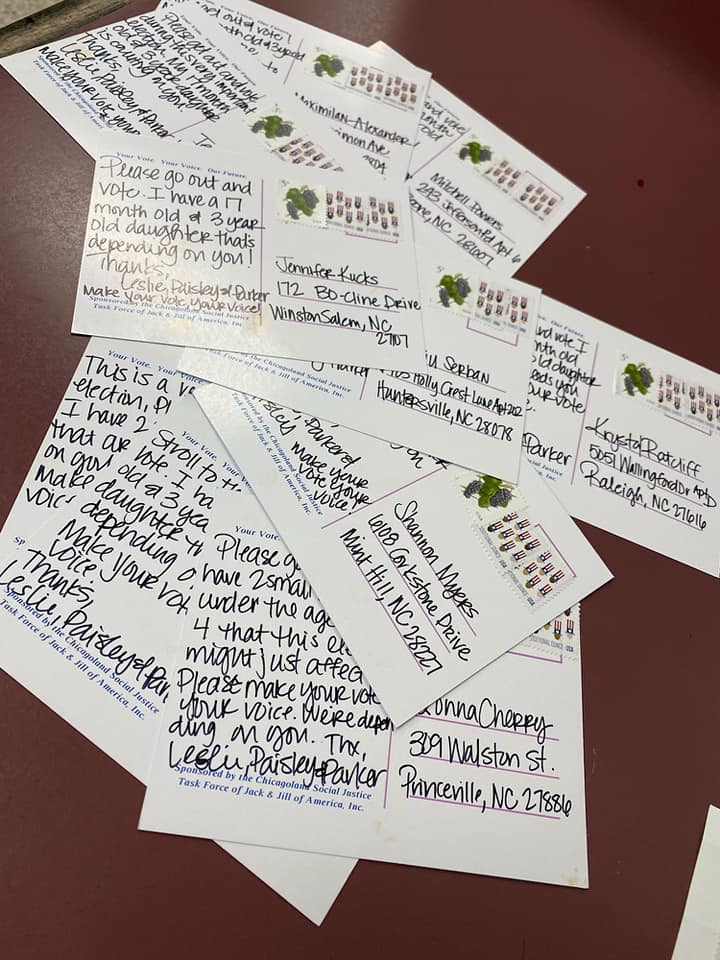 out & vote!
Please get out and vote
during this very important
election. My 17 month
old & 3 year daughter
is counting on you!
Thanks,
Leslie, Paisley & Parker
Make your vote, your
Sponsored by the Chicagoland
Task Force of Jack & Jill of Am
Maximilian Alexander
imon Ave
and vote
month
old
Mitchell Powers
Apt 6
one, NC 28607
Your Vote. Your Voice. Our Future.
Please go out and
vote. I have a 17
month old & 3 year
old daughter that's
depending on you!
Thanks,
Leslie, Paisley & Parker
Make your vote, your voice!
Sponsored by the Chicagoland Social Justice
Task Force of Jack & Jill of America, Inc.
Jennifer Kucks
172 Bo-Cline Drive
Winston Salem, NC
27107
Serban
Holly Crest Lane Apt 202
Huntersville, NC 28078
the Chicagoland Social Justice
Task Force of Jack & Jill of America, Inc.
Our Future.
and vote I
nth old
old daughter
eds you
our vote
Parker
Justice
Inc.
Krystal Ratcliff
5051 Wallingford Dr Apt D
Raleigh, NC 27616
Your Vote. Your Voice.
This is a ve
election, Pl
I have 2
that are
on you!
Make
voice
Thanks,
Leslie, Paisley & Par
Sponsored by the Chicagoland Social Justice
Task Force of Jack & Jill of America, Inc.
Your Vote. Your
Stroll to th
vote. I ha
old & 3 yea
daughter th
depending o
Make your vo
voice.
Parker
make your
vote your
voice
Chicagoland Social Justice
Task Force of Jack & Jill of America, Inc.
Shannon Myers
6108 Corkstone Drive
Mint Hill, NC 28227
Your Vote.
Please g
have 2 small
under the age
4 that this ele
might just affect
Please make your vote
your voice. We're depen
ding on you. Thx,
Leslie, Paisley & Parker
Sponsored by the Chicagoland Social Justice
Task Force of Jack & Jill of America, Inc.
ADDITIONAL OUNCE USA
Donna Cherry
309 Walston St.
Princeville, NC 27886